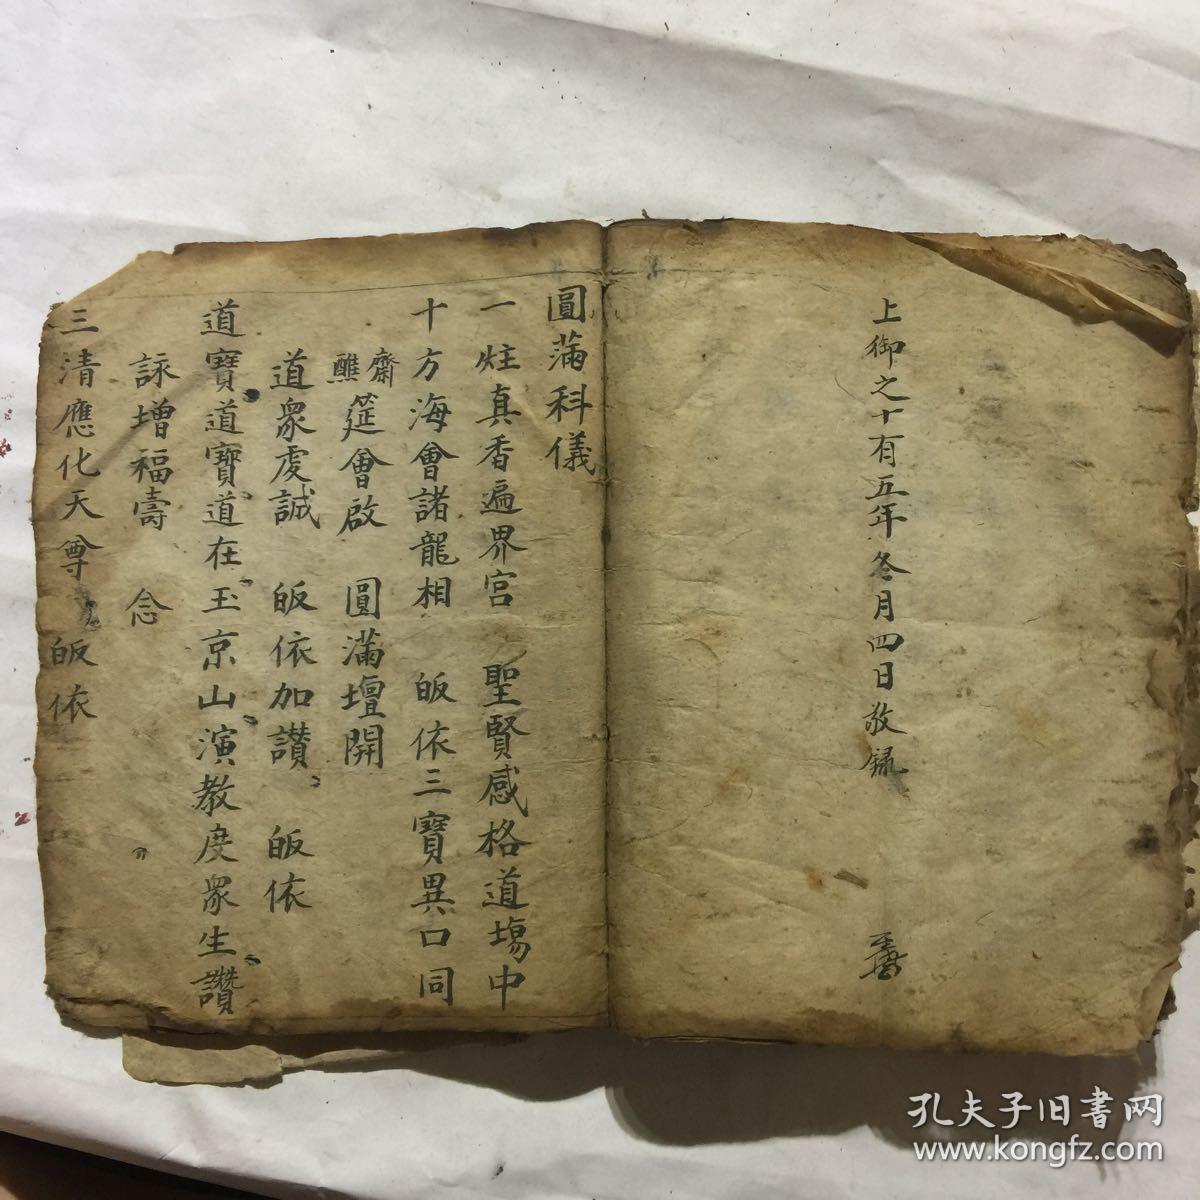 上御之十有五年冬月四日敬錄
圓滿科儀
一炷真香遍界宫 聖賢感格道塲中
十方海會諸龍相 皈依三寶異口同
齋醮筵會啟 圓滿壇開
道眾虔誠 皈依加讃 皈依
道寳道寳道在玉京山演教度眾生讚
詠增福壽 念
三清應化天尊 皈依
孔夫子旧書网
www.kongfz.com